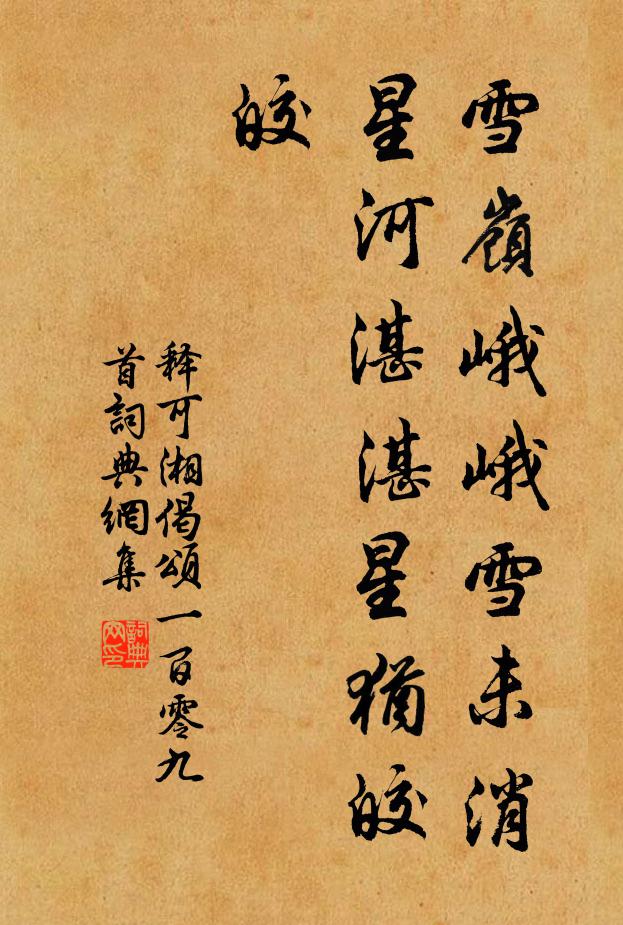 雪嶺峨峨雪未消
星河湛湛星猶皎
皎
釋可湘偈頌一百零九
首詞典網集
詞典
网印